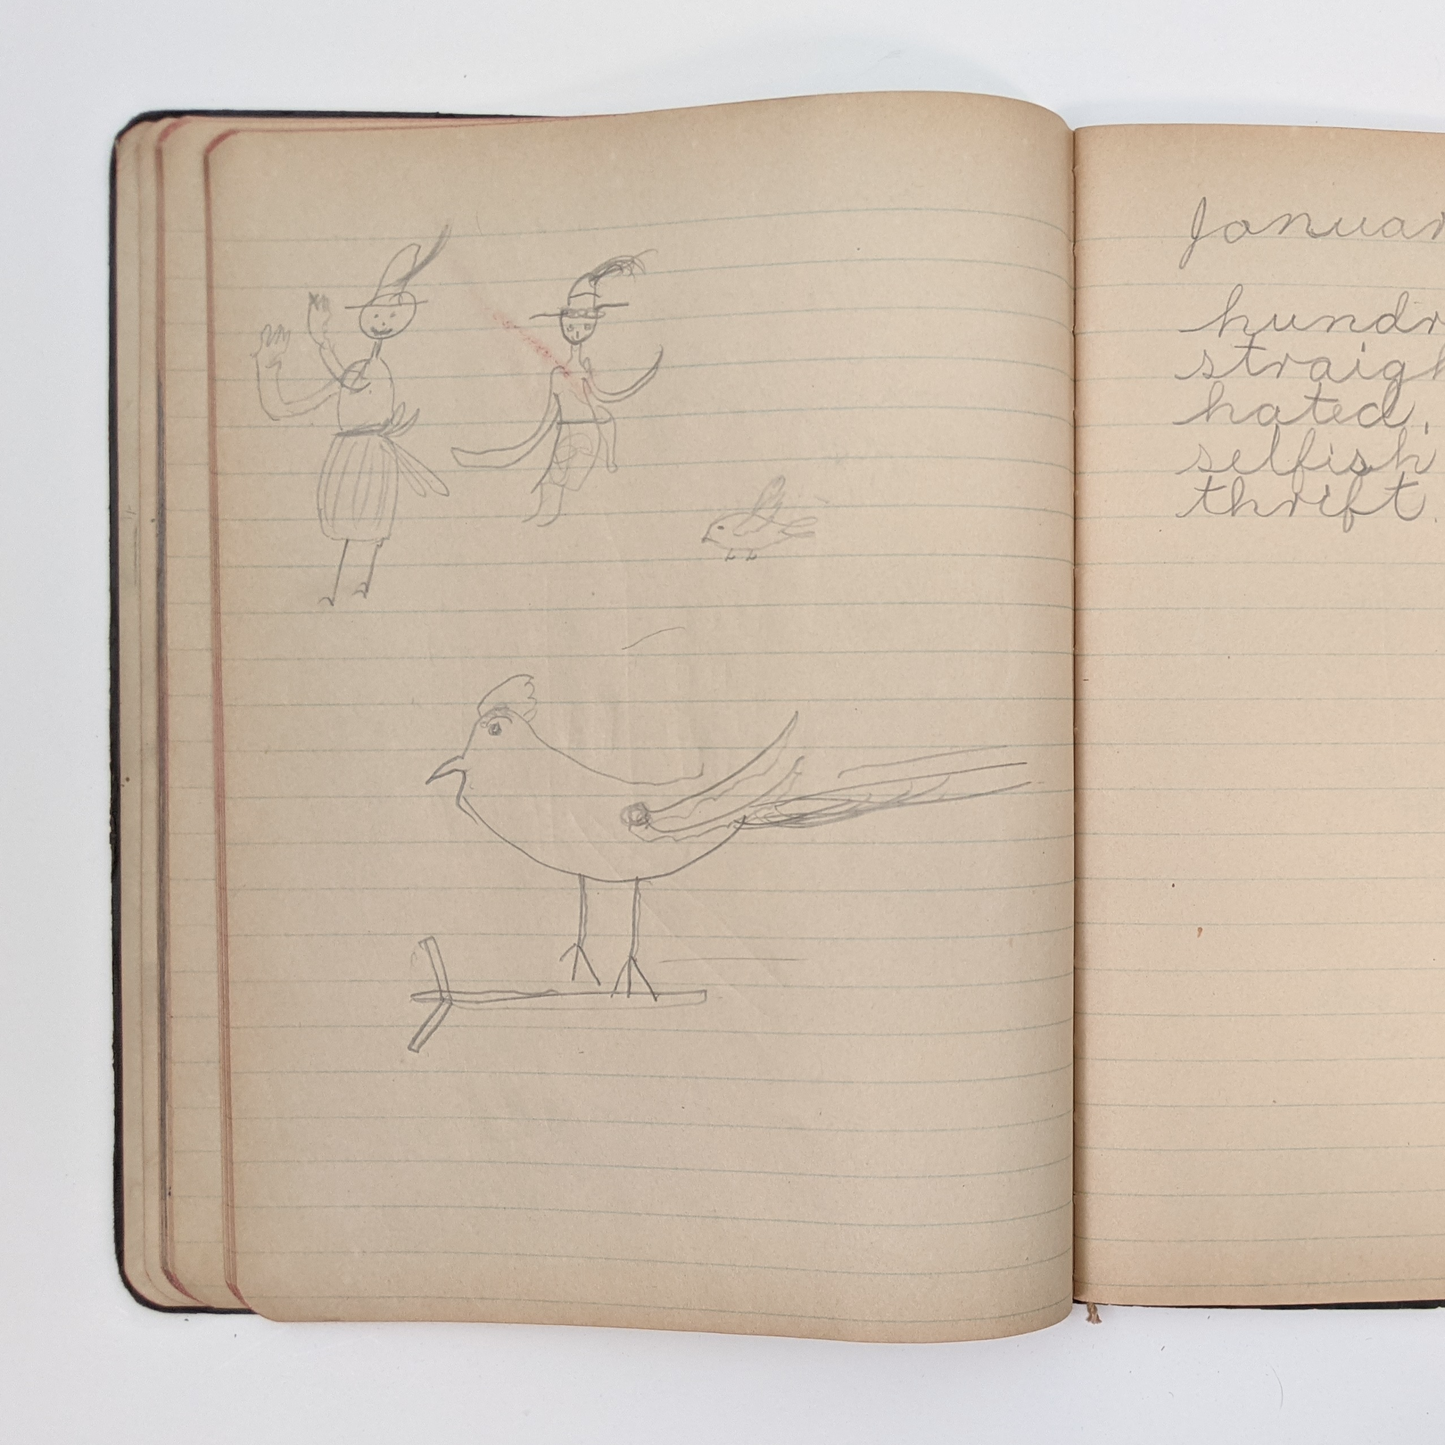 Januar
hundr
straigh
hated,
selfish
thrift.